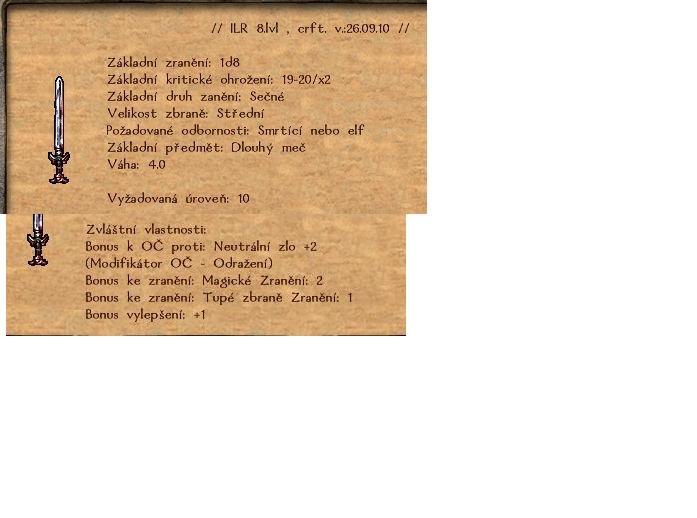 // ILR 8.lvl , crft. v.:26.09.10 //
Základní zranění: 1d8
Základní kritické ohrožení: 19-20/x2
Základní druh zanění: Sečné
Velikost zbraně: Střední
Požadované odbornosti: Smrtící nebo elf
Základní předmět: Dlouhý meč
Váha: 4.0
Vyžadovaná úroveň: 10
Zvláštní vlastnosti:
Bonus k OČ proti: Neutrální zlo +2
(Modifikátor OČ - Odražení)
Bonus ke zranění: Magické Zranění: 2
Bonus ke zranění: Tupé zbraně Zranění: 1
Bonus vylepšení: +1